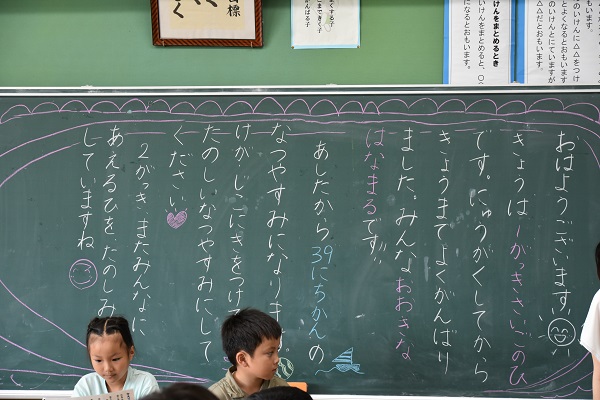 おはようございます。
きょうは一がっきさいごのひ
です。にゅうがくしてから
きょうまでよくがんばり
ました。みんなおおきな
はなまるです!!
あしたから39にちかんの
なつやすみになりま
けが、じこにきをつけ
たのしいなつやすみにして
ください。
2がっき、またみんなに
あえるひをたのしみ
していますね。
標
く
よくする子
までできく子
んばる子
けんをまとめるとき
いけんをまとめると、〇〇
になるとおもいます。
います。
のいけんに△△をつけ
とよくなるとおもいます
いけんとにていますが
△△だとおもいます。